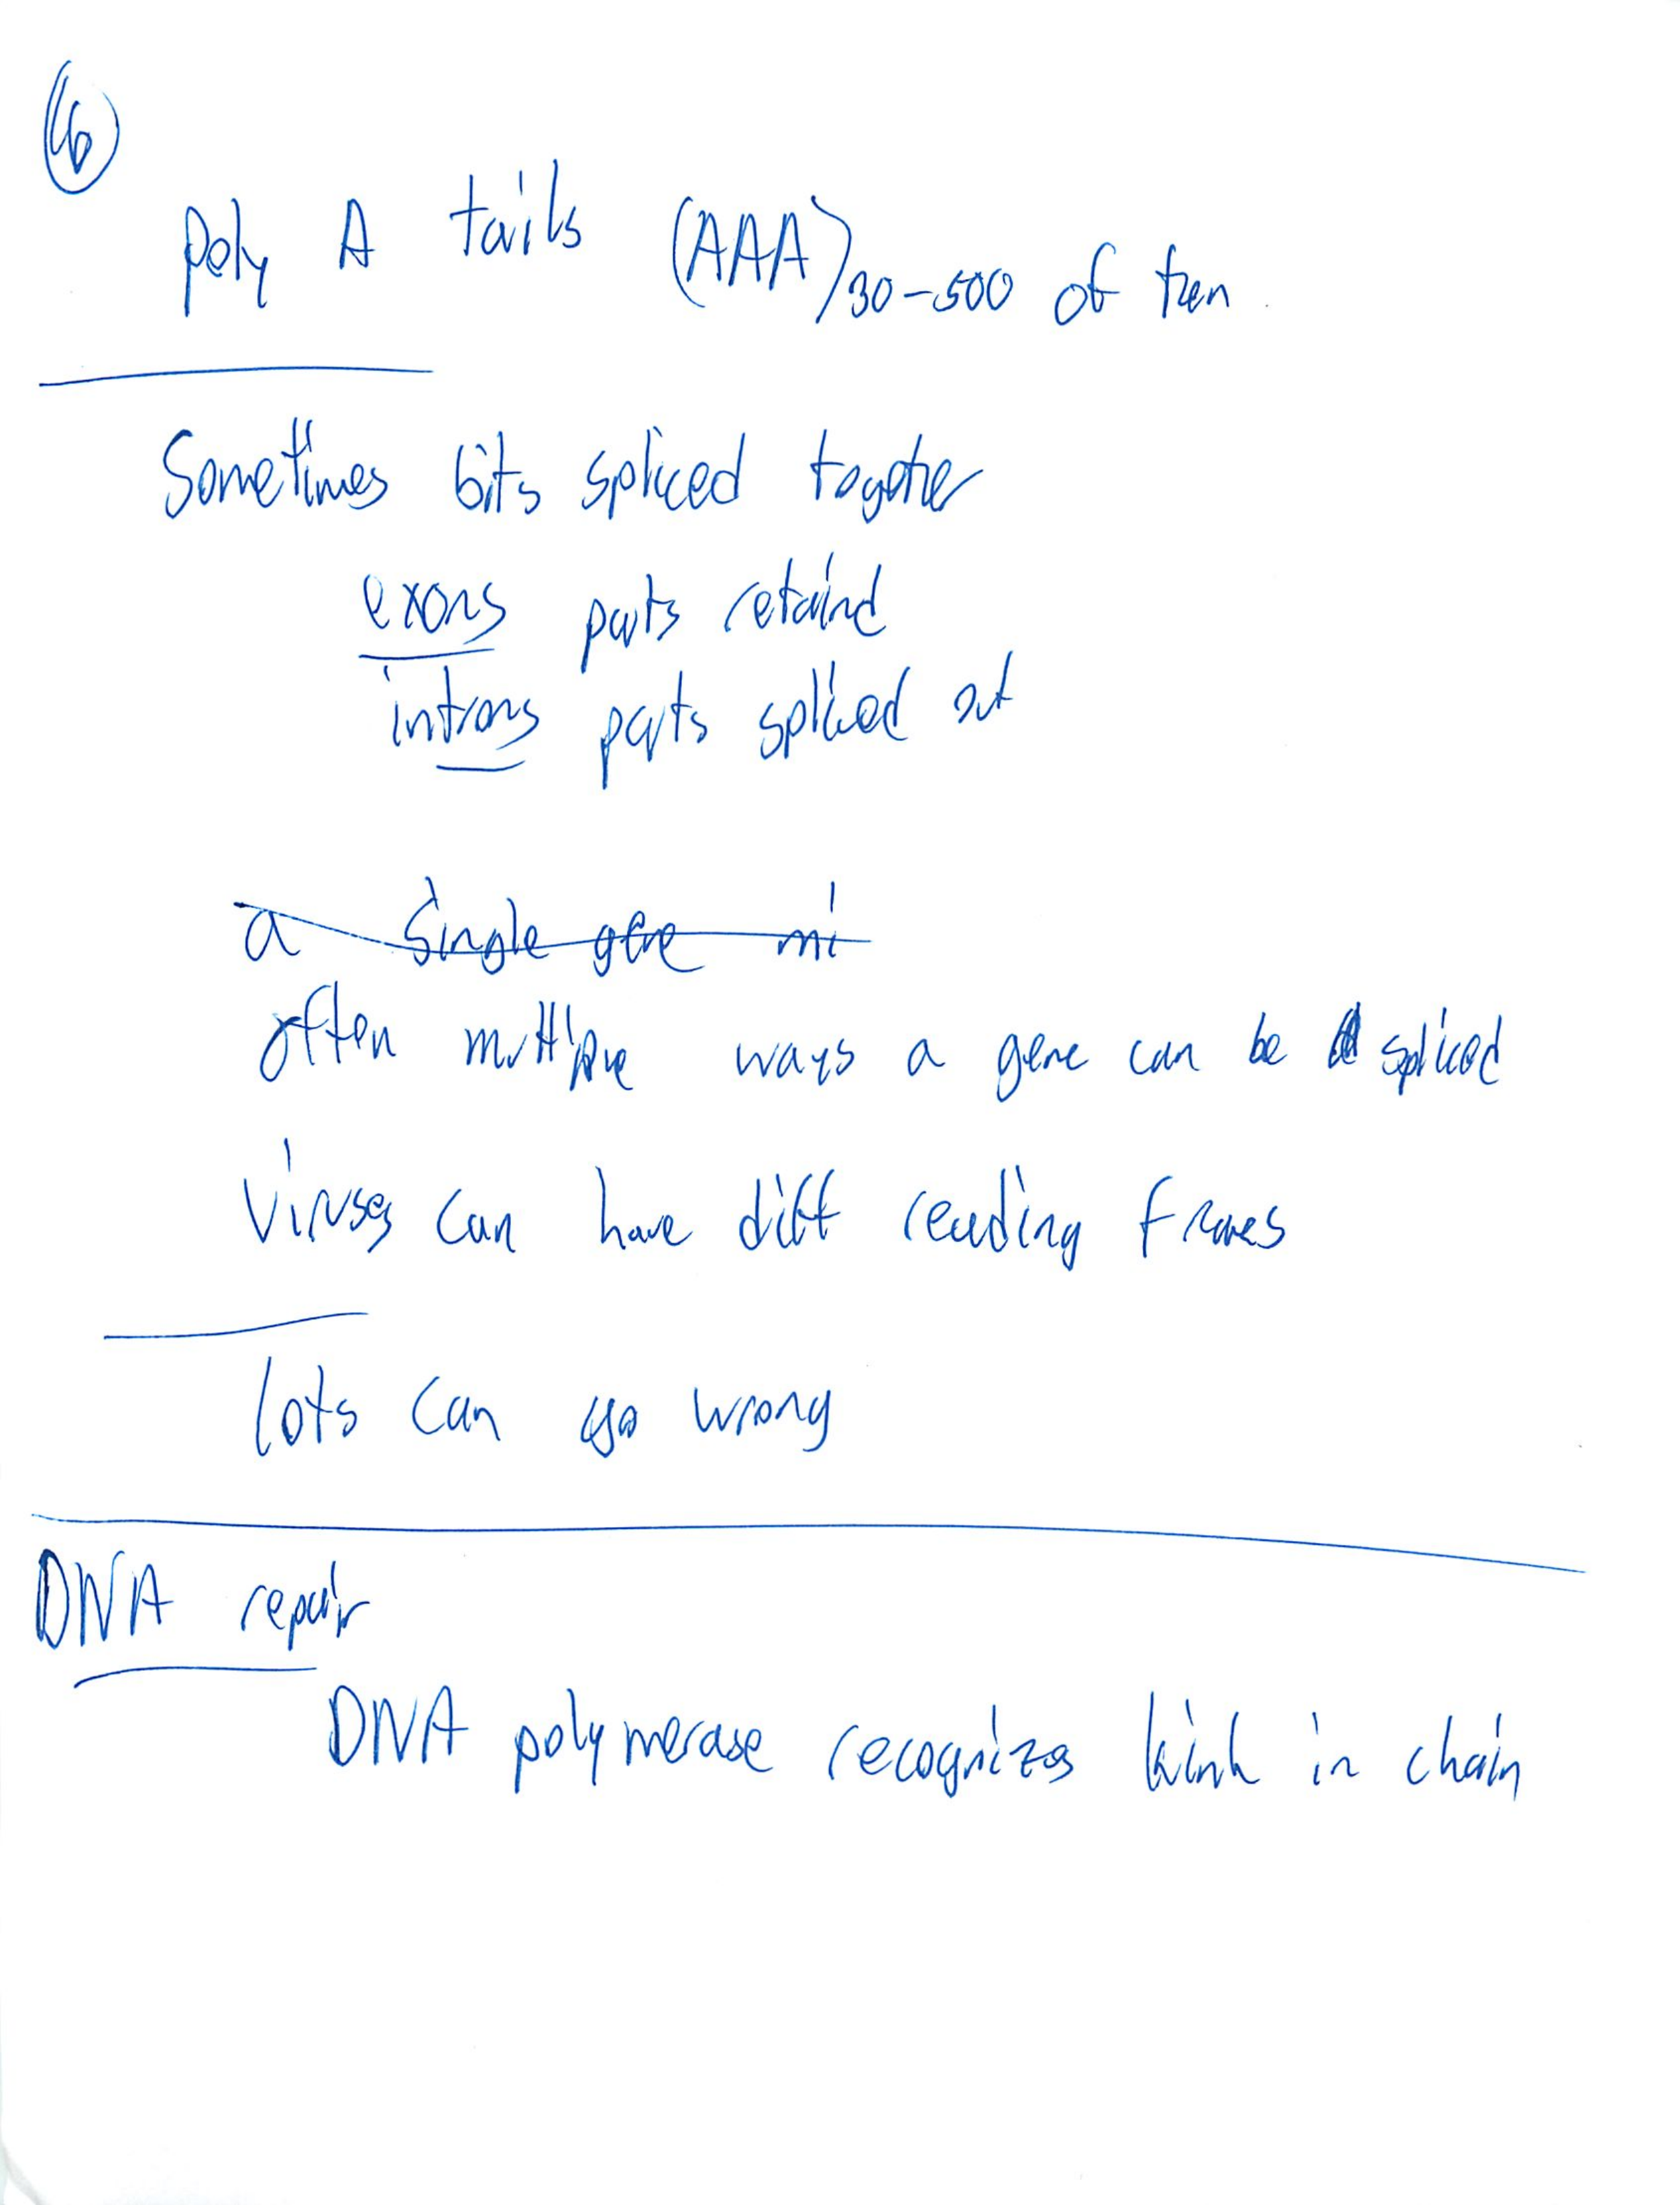 Poly A tails (AAA)30-500 of them.
Sometimes bits spliced together
exons parts retaind
introns parts spliced out
a single gene mi
often multiple ways a gene can be spliced
Viruses can have diff reading frames
lots can go wrong
DNA repair
DNA polymerase recognizes kink in chain